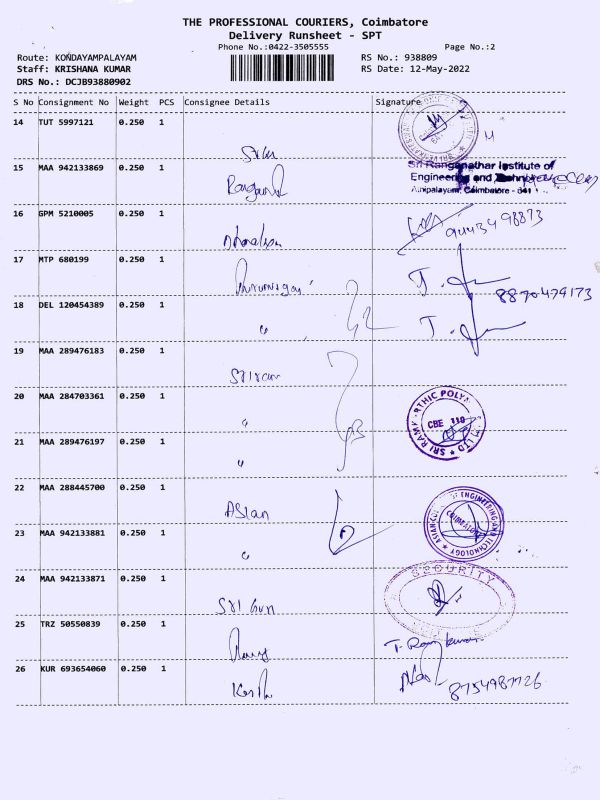 THE PROFESSIONAL COURIERS, Coimbatore
Delivery Runsheet - SPT
Phone No.:0422-3505555
Page No.:2
Route: KONDAYAMPALAYAM
RS No.: 938809
Staff: KRISHANA KUMAR
RS Date: 12-May-2022
DRS No.: DCJB93880902
S No Consignment No Weight PCS Consignee Details Signature
14 TUT 5997121 0.250 1
15 MAA 942133869 0.250 1
Sri Ranganathar Institute of
Engineering and
Athipalayam, Coimbatore - 641
16 GPM 5210005 0.250 1
9443498873
17 MTP 680199 0.250 1
8870479173
18 DEL 120454389 0.250 1
"
19 MAA 289476183 0.250 1
Sriram
20 MAA 284703361 0.250 1
"
CBE 110
21 MAA 289476197 0.250 1
"
22 MAA 288445700 0.250 1
Asian
23 MAA 942133881 0.250 1
"
24 MAA 942133871 0.250 1
SECURITY
Sri Gur
25 TRZ 50550839 0.250 1
T. Ramkumar
26 KUR 693654060 0.250 1
8754987726